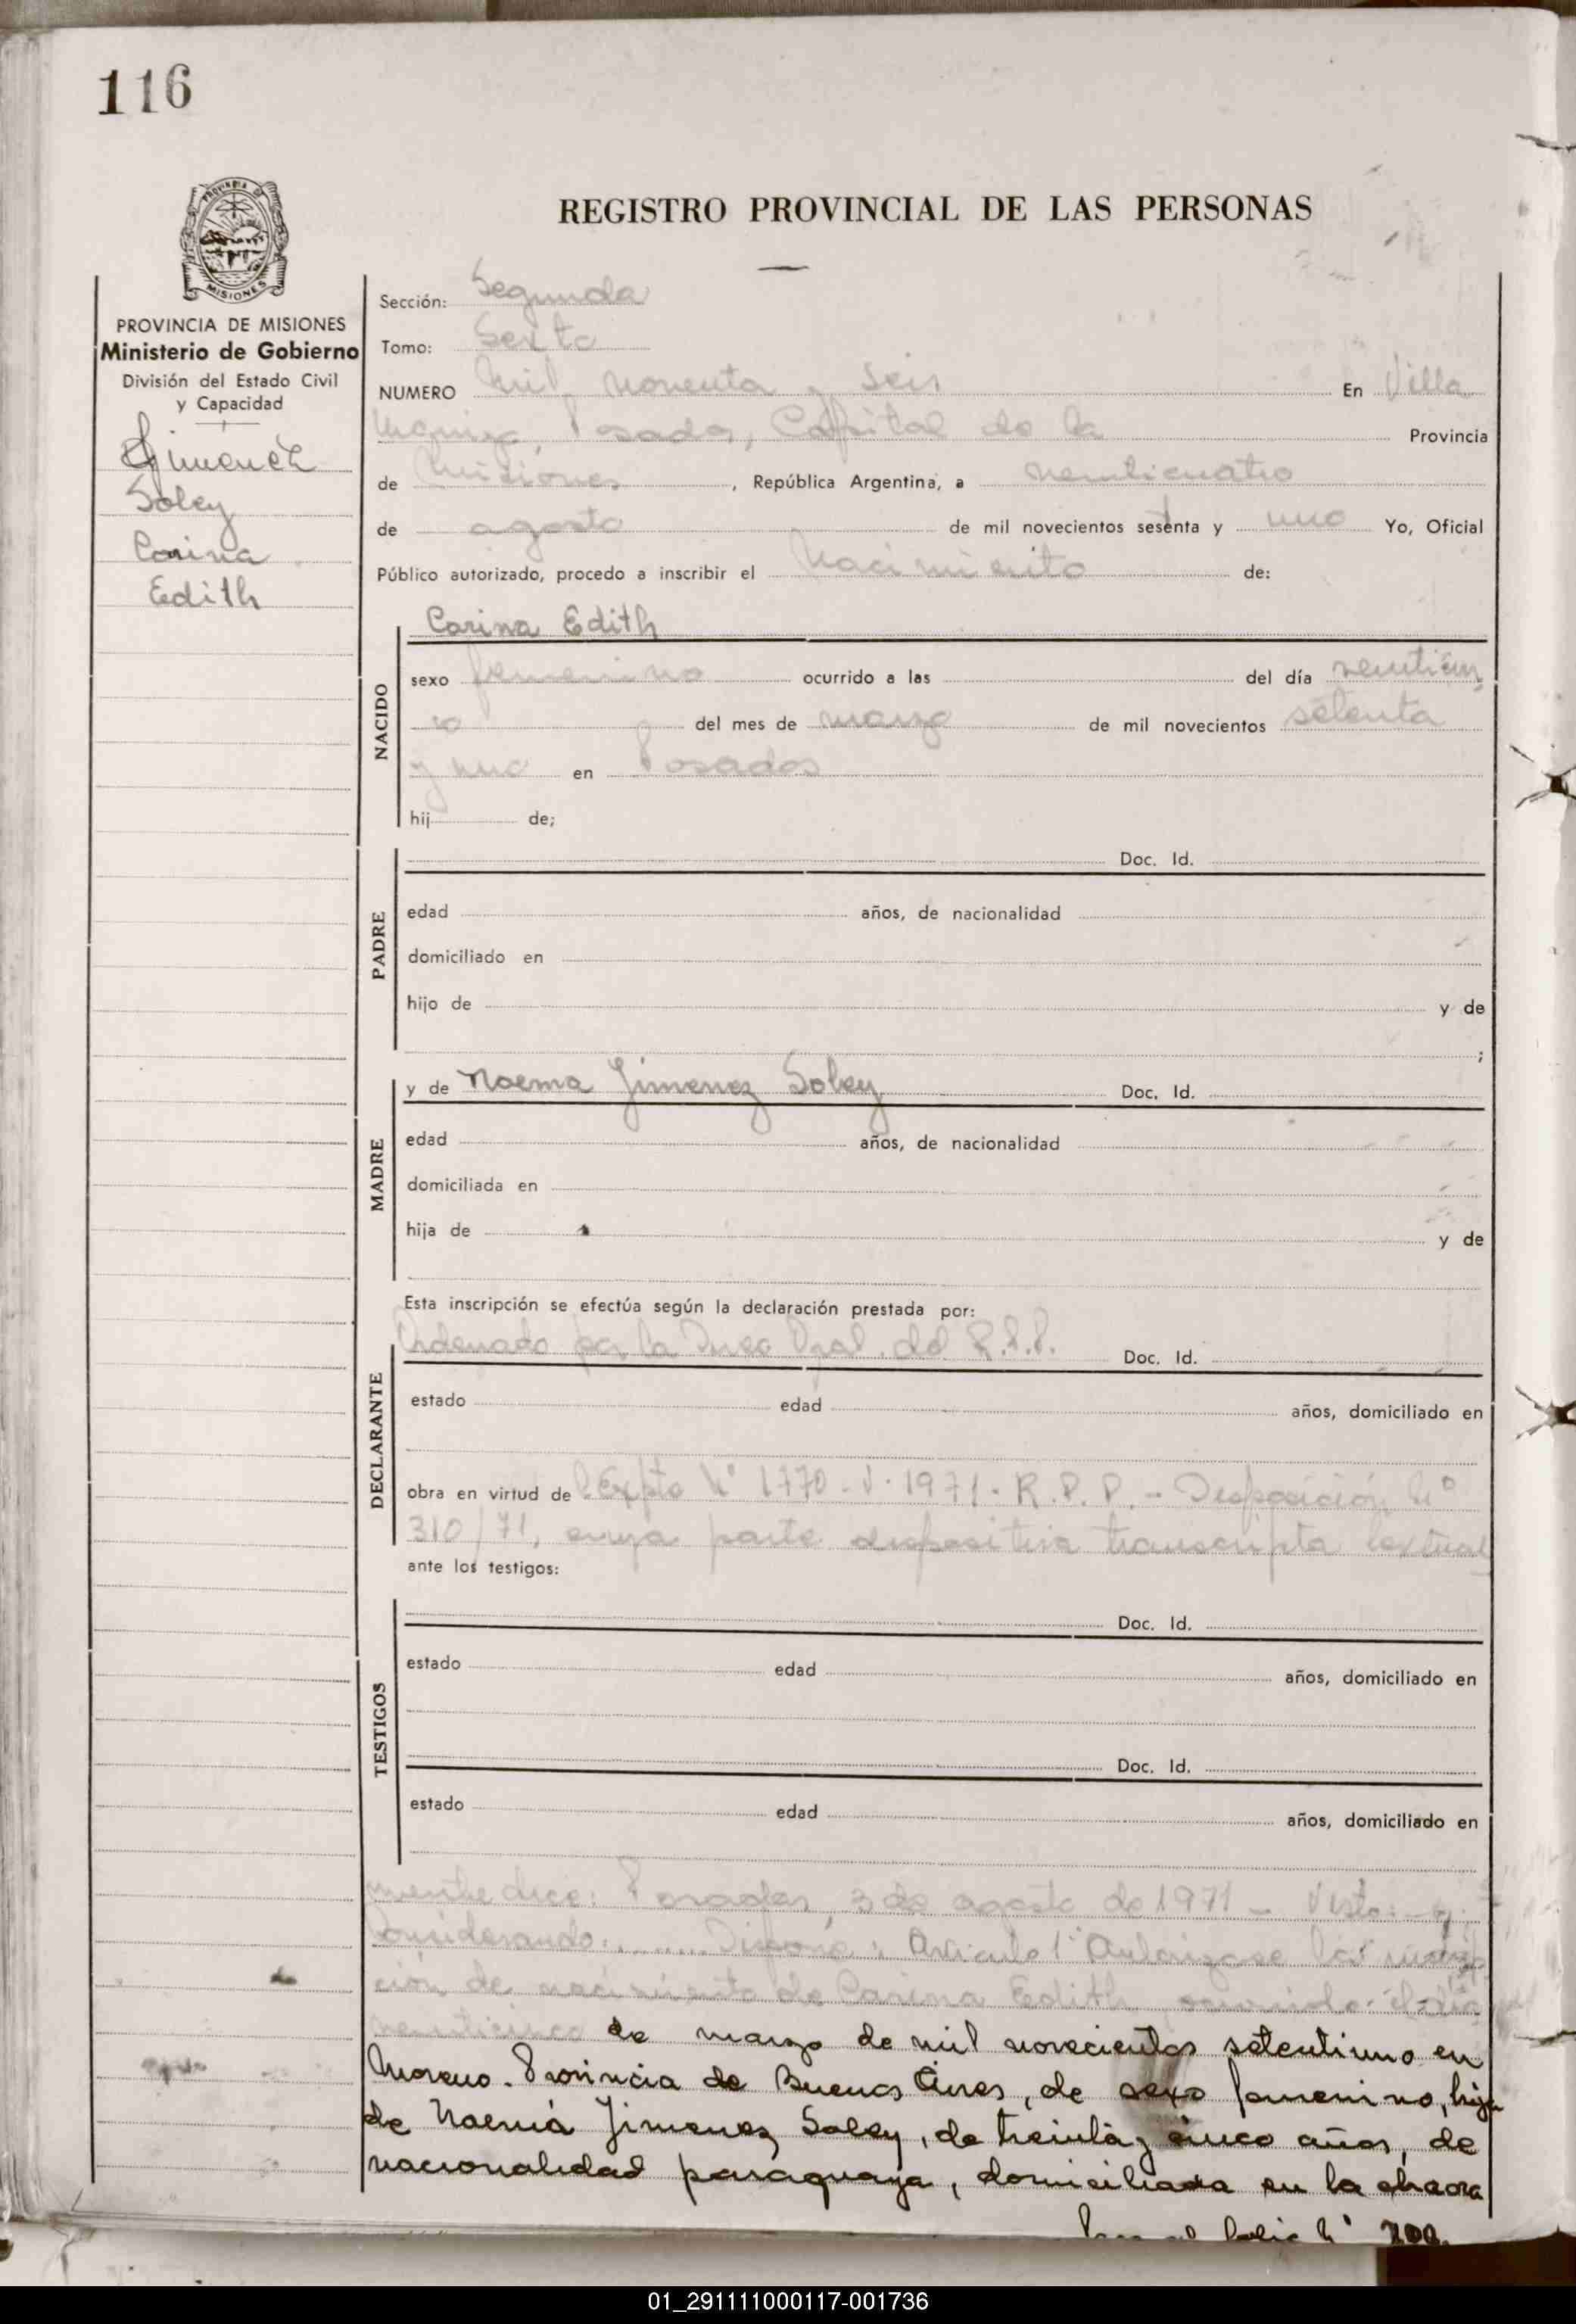 116
PROVINCIA DE
MISIONES
REGISTRO PROVINCIAL DE LAS PERSONAS
PROVINCIA DE MISIONES
Ministerio de Gobierno
División del Estado Civil
y Capacidad
Gimenez
Soley
Carina
Edith
Sección: Segunda
Tomo: Sexto
NUMERO Mil noventa y seis En Villa
Urquiza, Posadas, Capital de la Provincia
de Misiones, República Argentina, a veinticuatro
de agosto de mil novecientos setenta y uno Yo, Oficial
Público autorizado, procedo a inscribir el Nacimiento de:
NACIDO
Carina Edith
sexo femenino ocurrido a las del día veinticin
co del mes de marzo de mil novecientos setenta
y uno en Posadas
hij de;
PADRE
Doc. Id.
edad años, de nacionalidad
domiciliado en
hijo de y de
;
MADRE
y de Noema Jimenez Soley Doc. Id.
edad años, de nacionalidad
domiciliada en
hija de y de
Esta inscripción se efectúa según la declaración prestada por:
DECLARANTE
Ordenado por la Direc Gral. del R.P.P. Doc. Id.
estado edad años, domiciliado en
obra en virtud de Expte Nº 1770-J-1971-R.P.P.- Disposición Nº
310/71, cuya parte dispositiva transcripta textual
ante los testigos:
TESTIGOS
Doc. Id.
estado edad años, domiciliado en
Doc. Id.
estado edad años, domiciliado en
mente dice: Posadas, 3 de agosto de 1971 - Visto: - y
Considerando:........ Dispone: Articulo 1º Autorizase la inscrip
ción de nacimiento de Carina Edith, ocurrido el día
veinticinco de marzo de mil novecientos setentiuno en
Moreno. Provincia de Buenos Aires, de sexo femenino, hija
de Noemá Jimenez Soley, de treinta y cinco años, de
nacionalidad paraguaya, domiciliada en la chacra
Pasa al folio Nº 200.
01_291111000117-001736